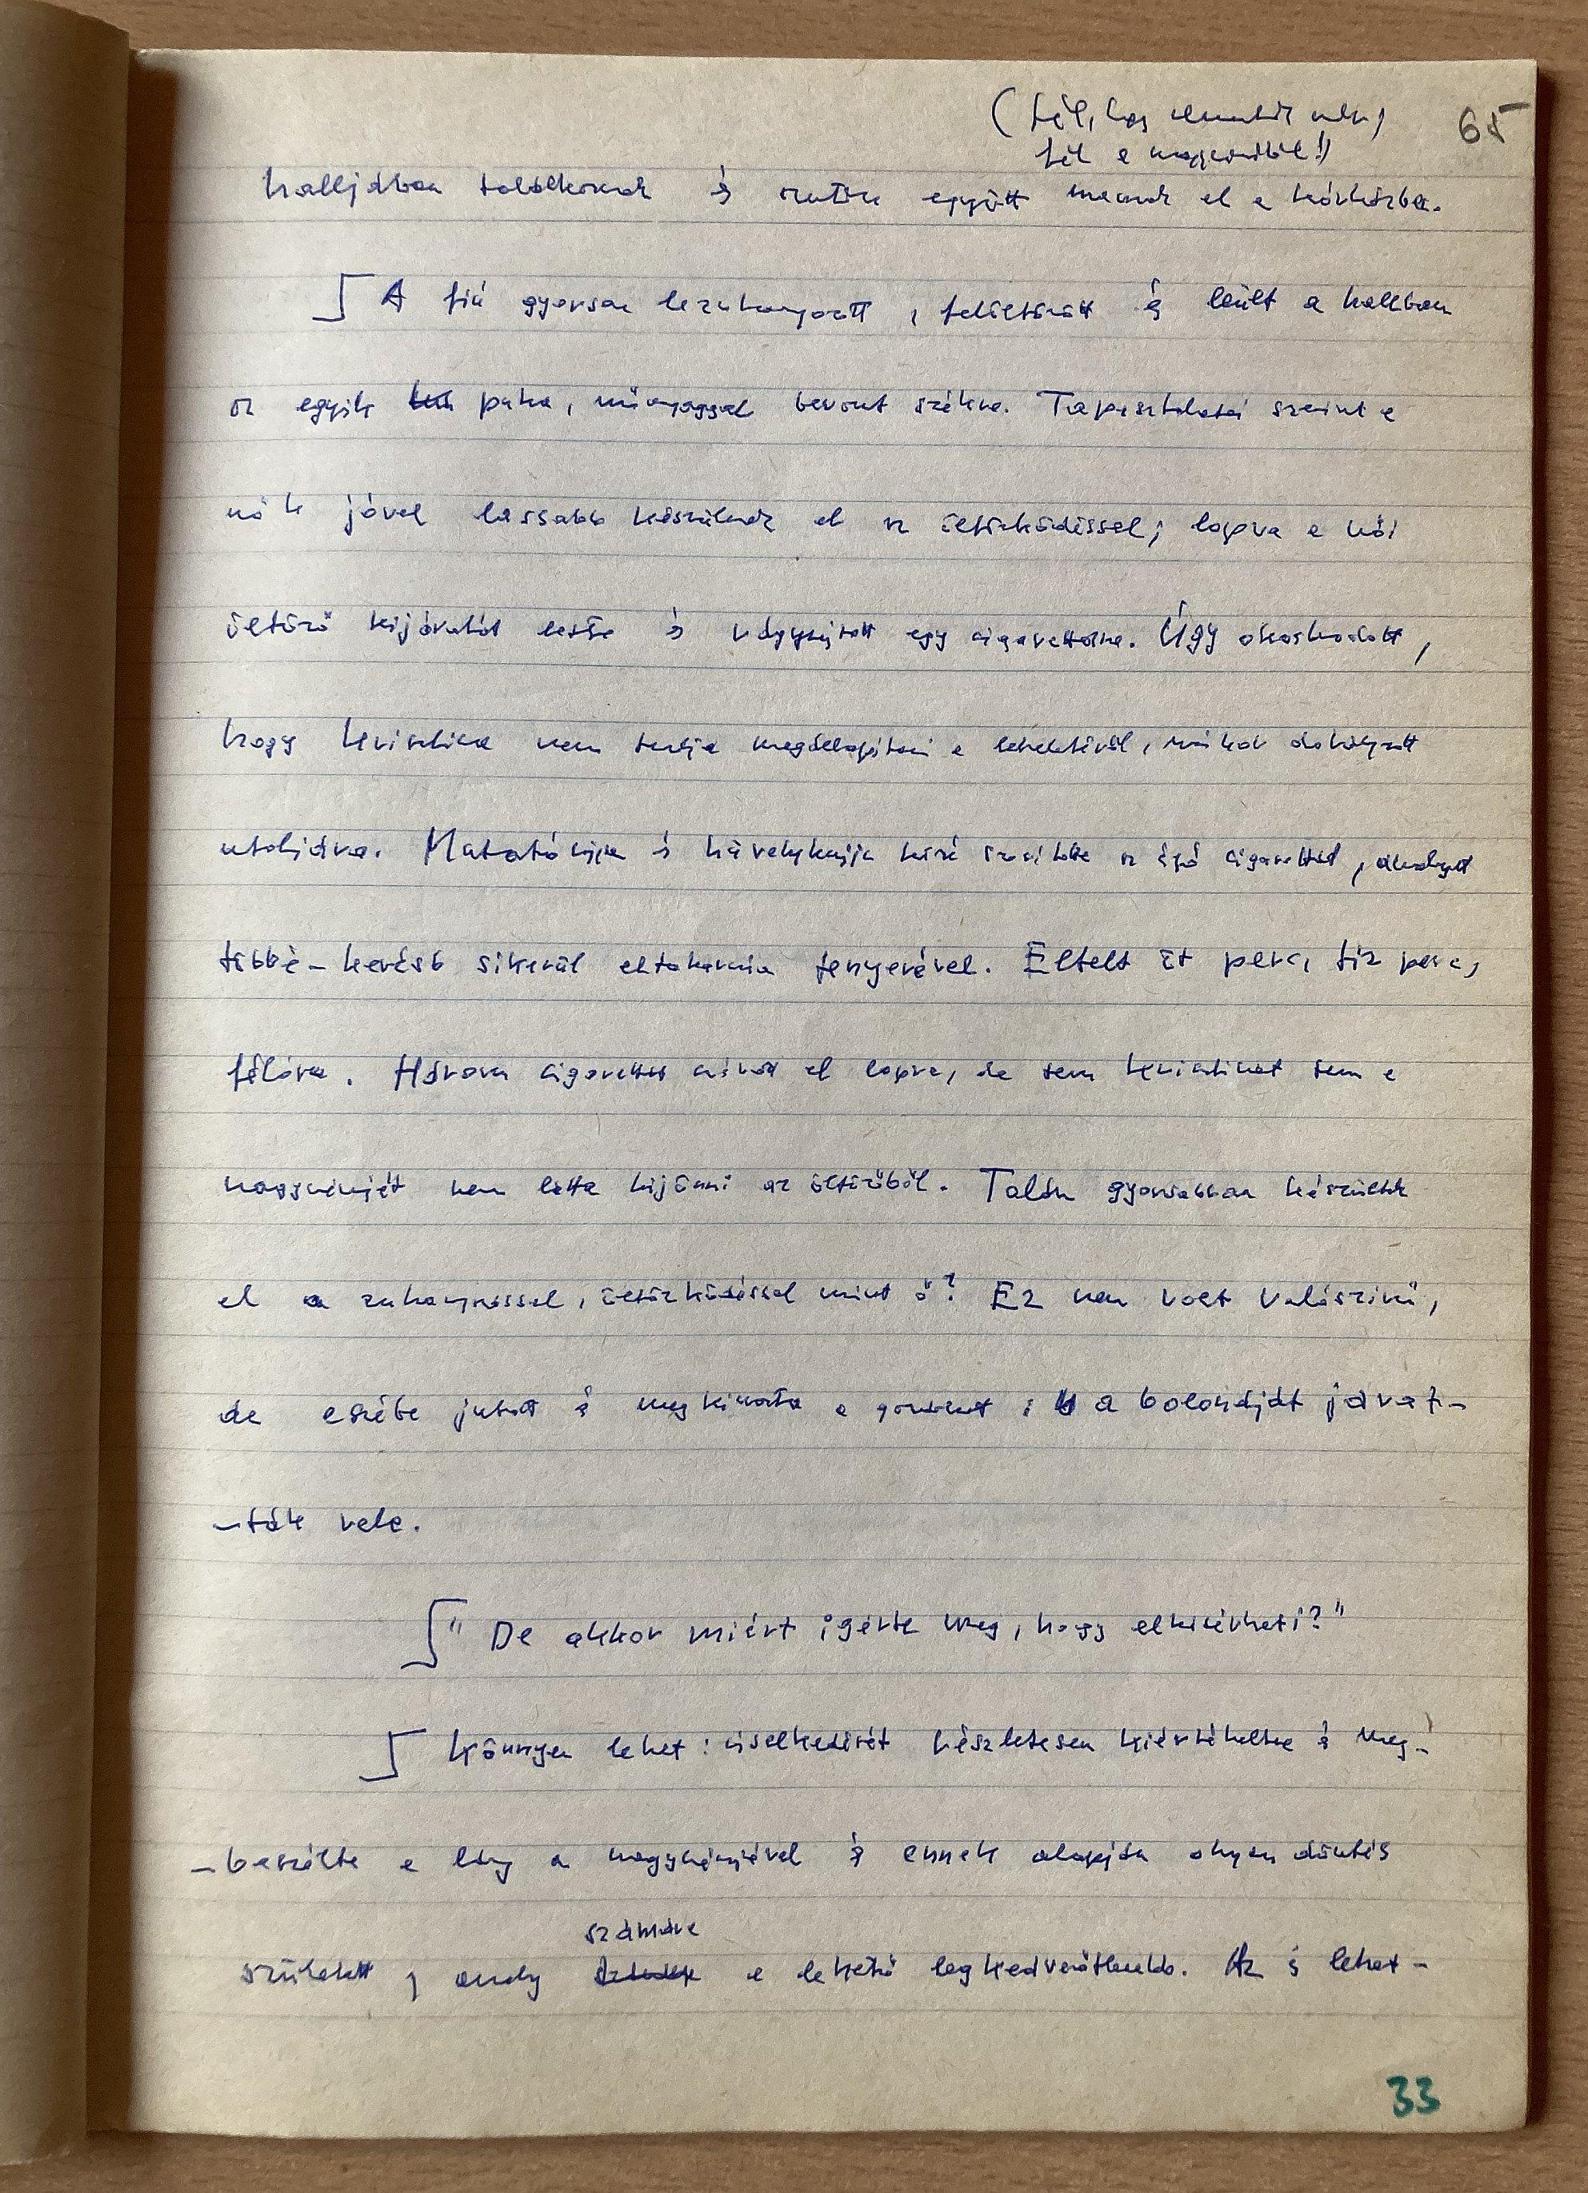 65
(fél, hogy
fél a nagynénitől!)
halljában találkoznak és azután együtt mennek el a kórházba.
A fiú gyorsan lezuhanyozott, felöltözött és leült a hallban
az egyik puha, műanyaggal bevont székre. Tapasztalatai szerint a
nők jóval lassabb készülnek el az öltözködéssel; lopva a női
öltöző kijáratát leste és rágyújtott egy cigarettára. Úgy okoskodott,
hogy Krisztina nem tudja megállapítani a leheletéről, mikor dohányzott
utoljára. Mutatóujja és hüvelykujja közé szorította az égő cigarettát, amelyet
többé-kevésb sikerül eltakarnia tenyerével. Eltelt öt perc, tíz perc,
félóra. Három cigarettát szívott el lopva, de sem Krisztinát sem a
nagynénjét nem látta kijönni az öltözőből. Talán gyorsabban készültek
el a zuhanyzással, öltözködéssel mint ő? Ez nem volt valószínű,
de eszébe jutott és megkínozta a gondolat: a bolondját járat-
-ták vele.
" De akkor miért ígérte meg, hogy elkísérheti?"
Könnyen lehet: viselkedését részletesen kiértékelte és meg-
-beszélte a lány a nagynénjével és ennek alapján olyan döntés
számára
született, amely a lehető legkedvezőtlenebb. Az is lehet-
33